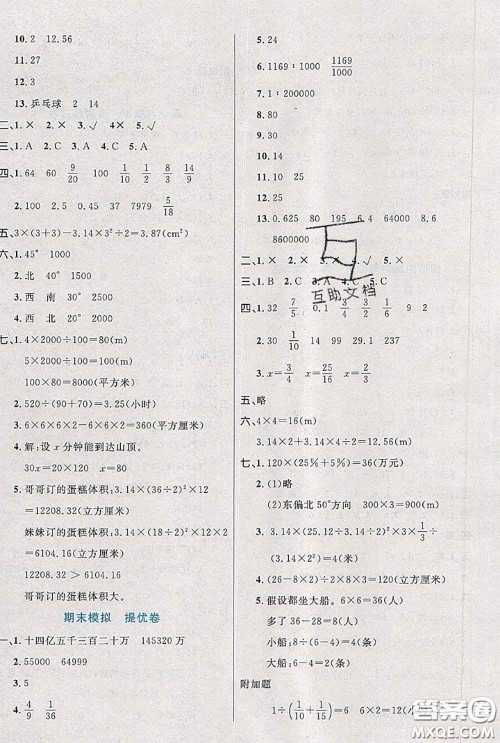 10. 2 12.56
11. 27
12. 3
13. 乒乓球 2 14
二、1. × 2. × 3. √ 4. × 5. √
三、1. A 2. C 3. A 4. C 5. A
四、1. 64 60 9/20 100 1/10 1/2 8/3 9/14
2. 100 2.5 0.47 8.75 5/18
五、3×(3+3)-3.14×3²÷2=3.87(cm²)
六、1. 45° 1000
2. 北 40° 1500
3. 西 南 30° 2500
4. 西 北 20° 2000
七、1. 4×2000÷100=80(m)
5×2000÷100=100(m)
100×80=8000(平方米)
2. 520÷(90-80)=3.25(小时)
3. 6×6×6×2-6×6×2=360(平方厘米)
4. 解:设x分钟能到达山顶。
30x=20×120 x=80
5. 哥哥订的蛋糕体积:3.14×(36÷2)²×12
=12208.32(立方厘米)
妹妹订的蛋糕体积:3.14×(18÷2)²×12×2
=6104.16(立方厘米)
12208.32>6104.16
哥哥订的蛋糕体积大。
期末模拟 提优卷
一、1. 十四亿五千三百二十万 145320万
2. 55000 64999
3. 5
4. 4/9 1/36
5. 24
6. 1169∶1000 1169/1000
7. 1∶200000
8. 80
9. 30
10. 14
11. 10 25
12. 25
13. 0.625 80 195 6.4 64000 8.6
8600000
二、1. × 2. × 3. × 4. × 5. ×
三、1. B 2. C 3. A 4. C 5. C
四、1. 32 7/5 0.1 3/4 1/6 9 2
2. 30 1/10 9 37
3. x=3/4 x=25/16 x=3/2
五、略
六、4×4=16(m)
3.14×2+3.14×4÷2=12.56(m)
七、1. 120×(25%+5%)=36(万元)
2. (1)略
(2)东偏北50°方向 300×3=900(m)
3. 3.14×(20÷2)²×2-3.14×2²×3×1/3÷
(3.14×2²)=1(cm)
4. (26-8×2)÷2×8=40(立方分米)
5. 假设都坐大船。6×6=36(人)
小船:(36-28)÷(6-4)=4(条)
大船:6-4=2(条)
附加题
1÷(1/10+1/15)=6 6×2=12(次)
互助文档
答案圈
MXQE.COM